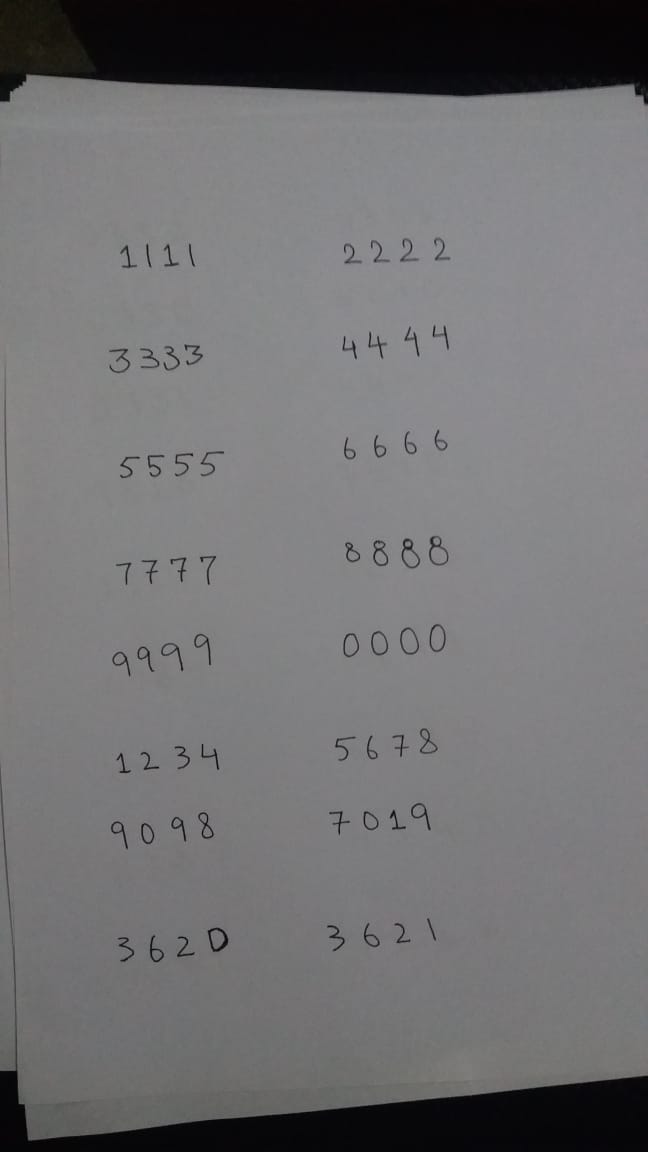 1111 2222
3333 4444
5555 6666
7777 8888
9999 0000
1234 5678
9098 7019
3620 3621